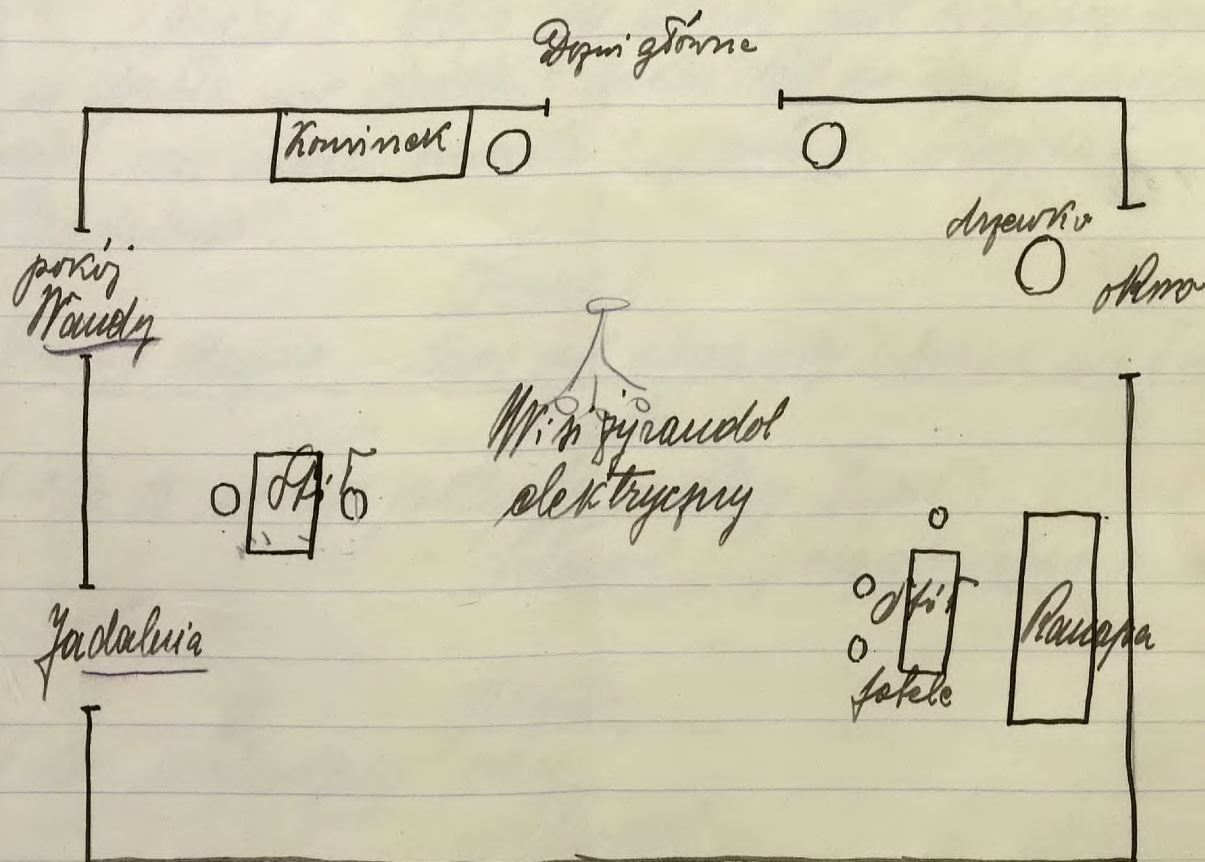 Drzwi główne
Kominek
drzewko
okno
pokój
Wandy
Wisi żyrandol
elektryczny
Stół
Stół
Jadalnia
Kanapa
fotele